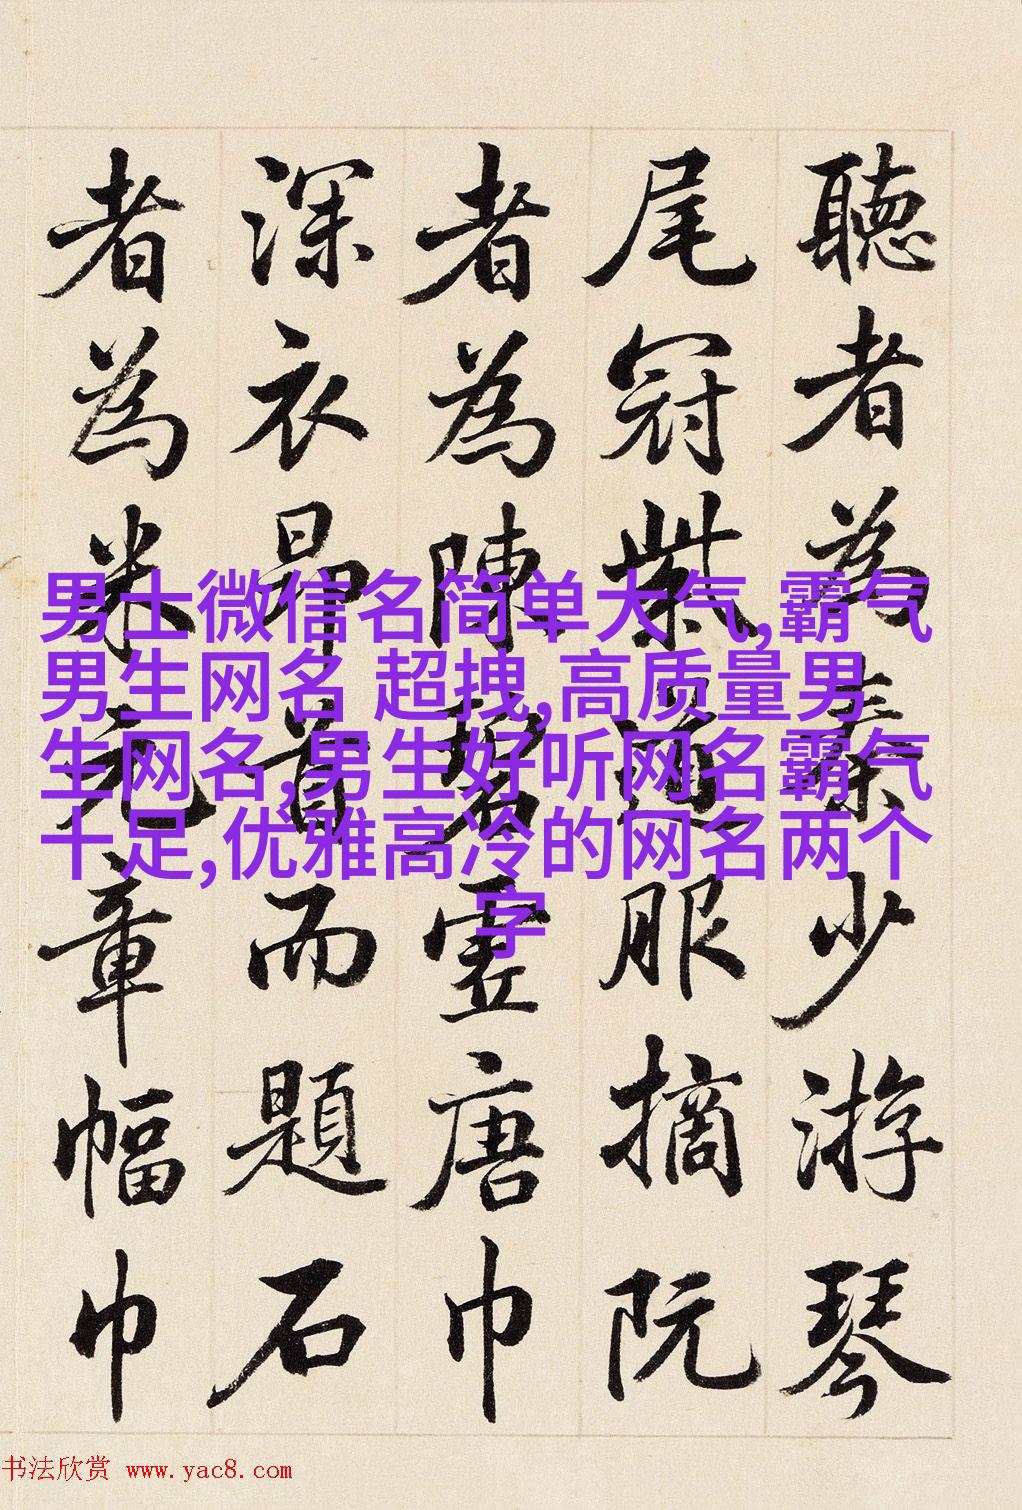 聽者為秦少游琴
尾冠紫道服摘阮
者為陳碧虛唐巾
深衣昂首而題石
者為米元章幅巾
男士微信名简单大气,霸气
男生网名 超拽,高质量男
生网名,男生好听网名霸气
十足,优雅高冷的网名两个
字
书法欣赏 www.yac8.com